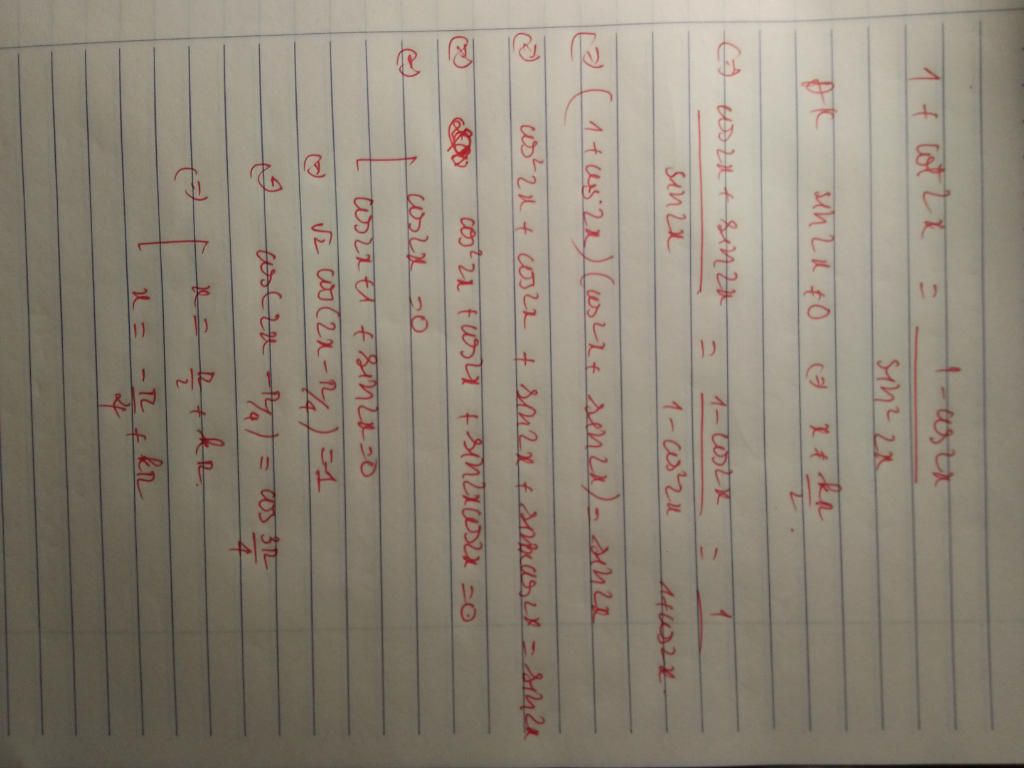 1 + cot 2x = (1 - cos2x) / (sin² 2x)
ĐK sin2x ≠ 0 (=) x ≠ kπ/2.
(=) (cos2x + sin2x) / (sin2x) = (1 - cos2x) / (1 - cos²2x) = 1 / (1+cos2x.)
(=) (1 + cos2x)(cos2x + sin2x) = sin2x
(=) cos²2x + cos2x + sin2x + sin2xcos2x = sin2x
(=) cos²2x + cos2x + sin2xcos2x = 0
(=) [ cos2x = 0
cos2x + 1 + sin2x = 0
(=) √2 cos(2x - π/4) = -1
(=) cos(2x - π/4) = cos 3π/4
(=) [ x = π/2 + kπ.
x = -π/4 + kπ